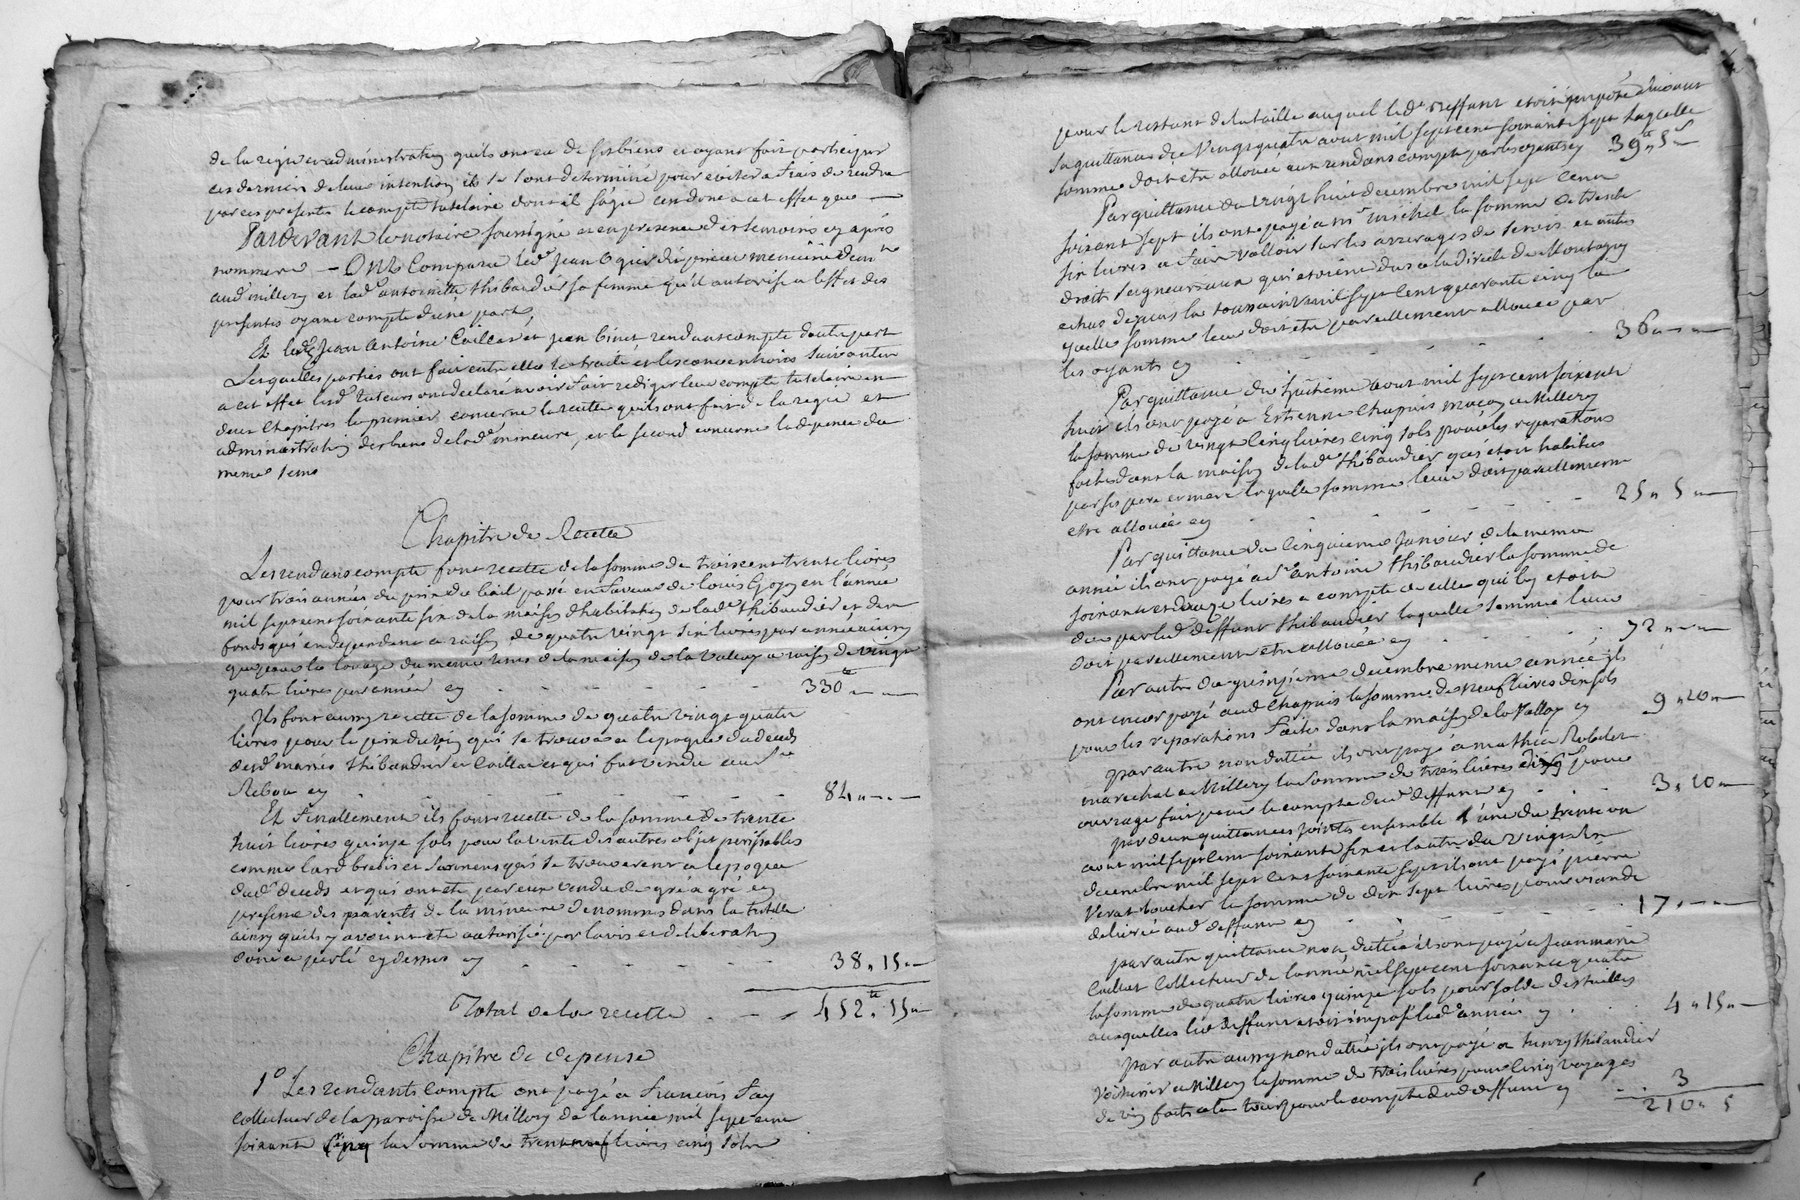 de la regie et administration quils ont eu de ses biens et ayant fait participer
ces dernier de leur intention ils se sont determiné pour eviter a frais de rendre
par ces presentes le compte tutelaire dont il s'agit cendonc a cet effet que —
Pardevant le notaire soussigné et en presence des temoins cy après
nommera — Ont Comparu led. Jean Ogier
aud. millery et lad. antoinette thibaudier sa femme qu'il autorise a leffet des
presentes oyant compte d'une part,
Et lesd. Jean Antoine Caillat et jean binet rendant compte dautre part
Lesquelles parties ont fait entre elles le traité et les conventions suivantes
a cet effet lesd. tuteurs ont declaré avoir fait rediger leur compte tutelaire en
deux Chapitres le premier, concerne la recette quils ont fait de la regie et
administration des biens de lad. mineure, et le second concerne la depense du
meme tems
Chapitre de Recette
Les rendans compte font recette de la somme de trois cent trente livres
pour trois années du prix du bail passé en faveur de louis en l'année
mil sept cent soixante six de la maison d'habitation de lad. thibaudier et des
fonds qui en dependent a raison de quatre vingt six livres par année ainsy
que pour le louage du meme tems de la maison de la vallay a raison de vingt
quatre livres par année cy - - - - 330 tt " —
Ils font aussy recette de la somme de quatre vingt quatre
livres pour le prix du vin qui se trouva a lepoque du deceds
desd. maries thibaudier et Caillat et qui fut vendu aud. sr.
Rebou cy - - - - 84 " —
Et finallement ils font recette de la somme de trente
huit livres quinze sols pour la vente des autres objet perissables
comme lard brebis et qui se trouverent a lepoque
dud. deceds et qui ont été par eux vendu de gré a gré en
presence des parents de la mineure denommés dans la tutelle
ainsy quils y avoient eté autorisé par lavis et deliberation
dont a parlé cy dessus cy - - - - 38 " 15 " —
Total de la recette - - - 452 tt " 15 " —
Chapitre de depense
1° Les rendants Compte ont payé a François Fay
collecteur de la paroisse de Millery de lannée mil sept cent
soixante cinq la Somme de trente neuf livres cinq sols
pour le restant de la taille auquel led. deffunt etoit imposé suivant
sa quittance du vingt quatre aout mil sept cent soixante sept laquelle
somme doit etre allouée aux rendans compte par les oyants cy 39 tt " 5 s —
Par quittance du vingt huit decembre mil sept cent
soixante sept ils ont payé a mr. michel la somme de trente
six livres a faire valloir sur les arrerages de servis et autres
droits seigneuriaux qui etoient dus a la directe de Montagny
echus depuis la toussaint mil sept cent quarante cinq la
quelle somme leur doit etre pareillement allouée par
les oyants cy - - - - 36 " — " —
Par quittance du huitieme aout mil sept cent soixante
huit ils ont payé a Estienne Chapuis maçon a Millery
la somme de vingt cinq livres cinq sols pour les reparations
faites dans la maison de lad. thibaudier qui etoit habitée
par ses pere et mere laquelle somme leur doit pareillement
etre allouée cy - - - - 25 " 5 " —
Par quittance du Cinquieme Janvier de la meme
année ils ont payé a d. antoine thibaudier la somme de
soixante et douze livres a compte de celle qui luy etoit
due par led. deffunt thibaudier laquelle somme leur
doit pareillement etre allouée cy - - - - 72 " — " —
Par autre du quinzieme decembre meme année ils
ont encor payé aud. Chapuis la somme de neuf livres dix sols
pour les reparations faites dans la maison de la Vallay cy 9 " 10 " —
par autre non dattée ils ont payé a mathieu
marechal a Millery la somme de trois livres dix s. pour
ouvrage fait pour le compte dud. deffunt cy - - 3 " 10 " —
par deux quittances jointes ensemble l'une du trente un
aout mil sept cent soixante six et l'autre du vingt
decembre mil sept cent soixante sept ils ont payé pierre
Verat boucher la somme de dix sept livres pour viande
delivrée aud. deffunt cy - - - - 17 " — " —
par autre quittance non dattée ils ont payé a Jean marie
Caillat Collecteur de lannée mil sept cent soixante quatre
la somme de quatre livres quinze sols pour solde des tailles
auxquelles led. deffunt etoit imposé lad. année cy - 4 " 15 " —
par autre aussy non dattée ils ont payé a henry thibaudier
Voiturier a Millery la somme de trois livres pour cinq voyages
de vin faits a la tour pour le compte dud. deffunt cy - - 3
210 " 5